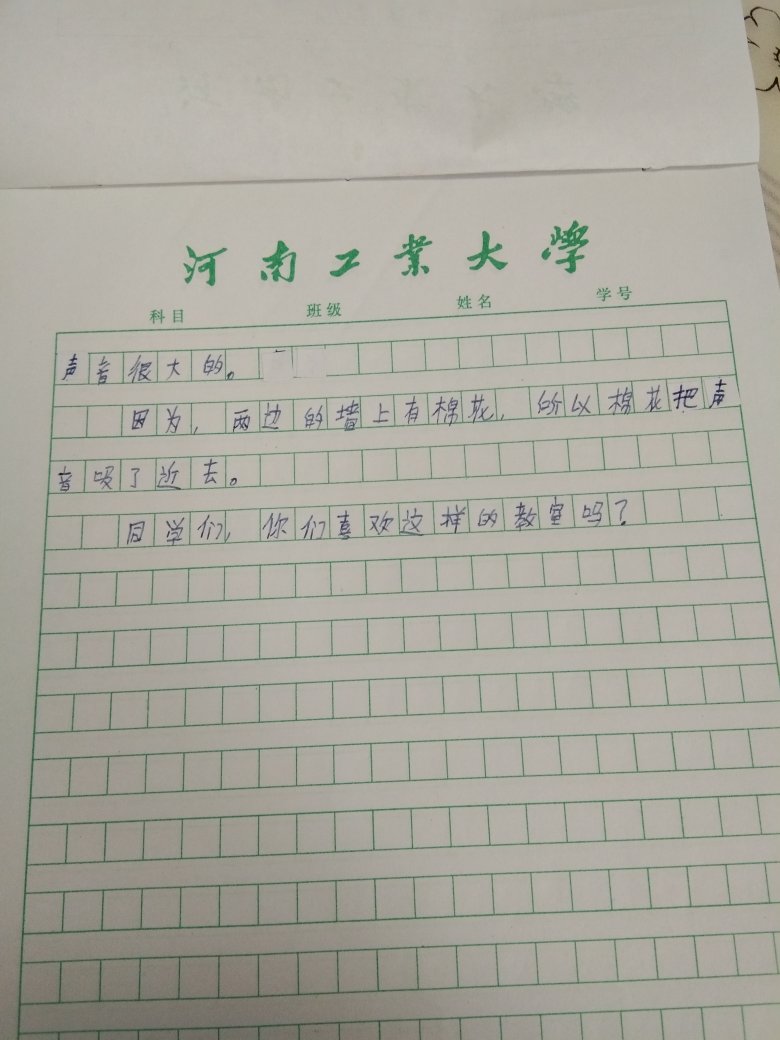 河南工業大學
科目 班级 姓名 学号
声音很大的。
因为，两边的墙上有棉花，所以棉花把声
音吸了近去。
同学们，你们喜欢这样的教室吗？